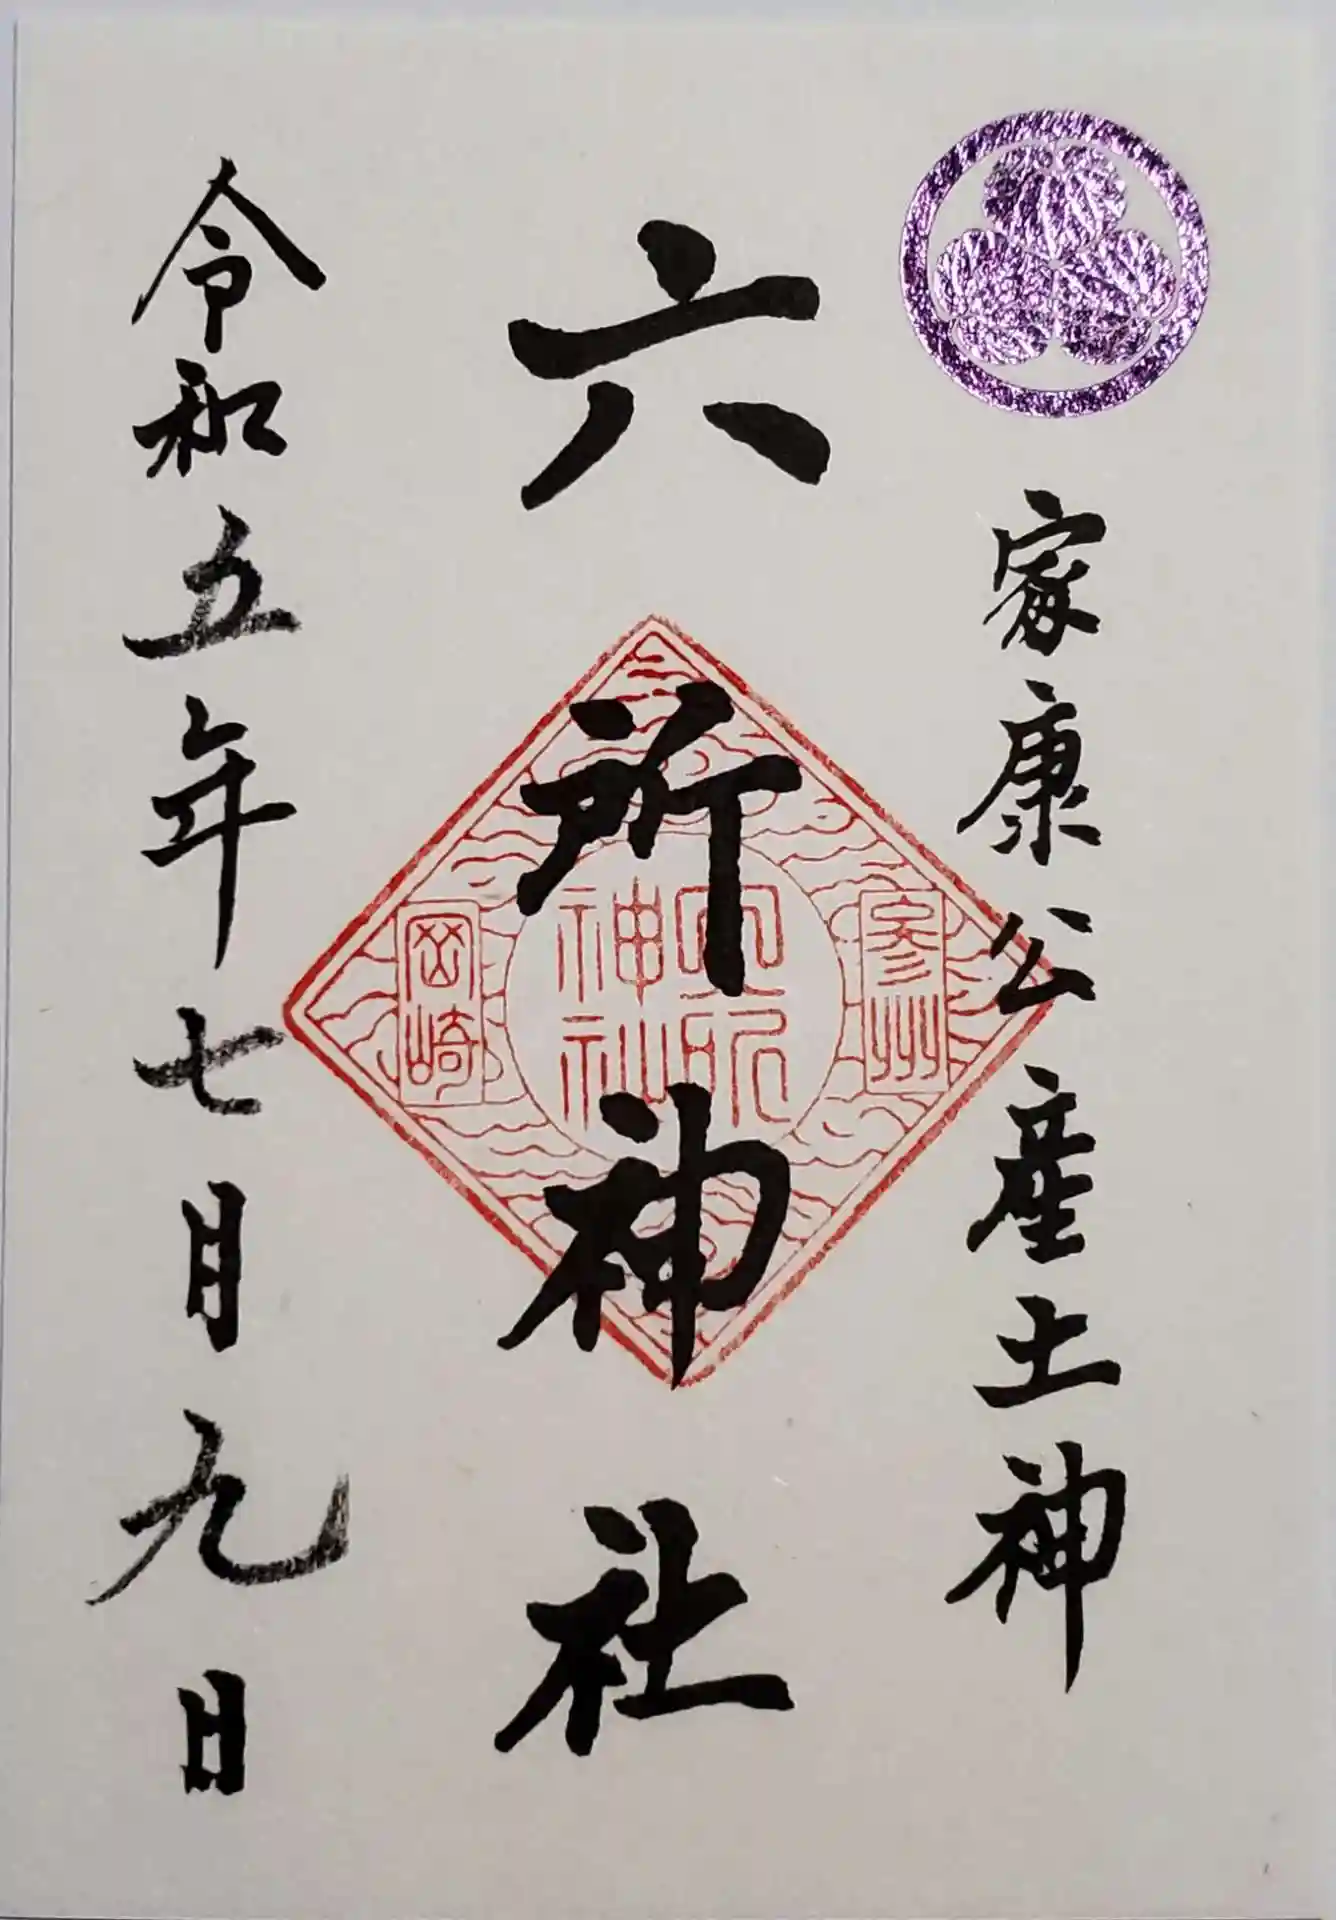 家康公産土神
六所神社
参州
六所神社
岡崎
令和五年七月九日